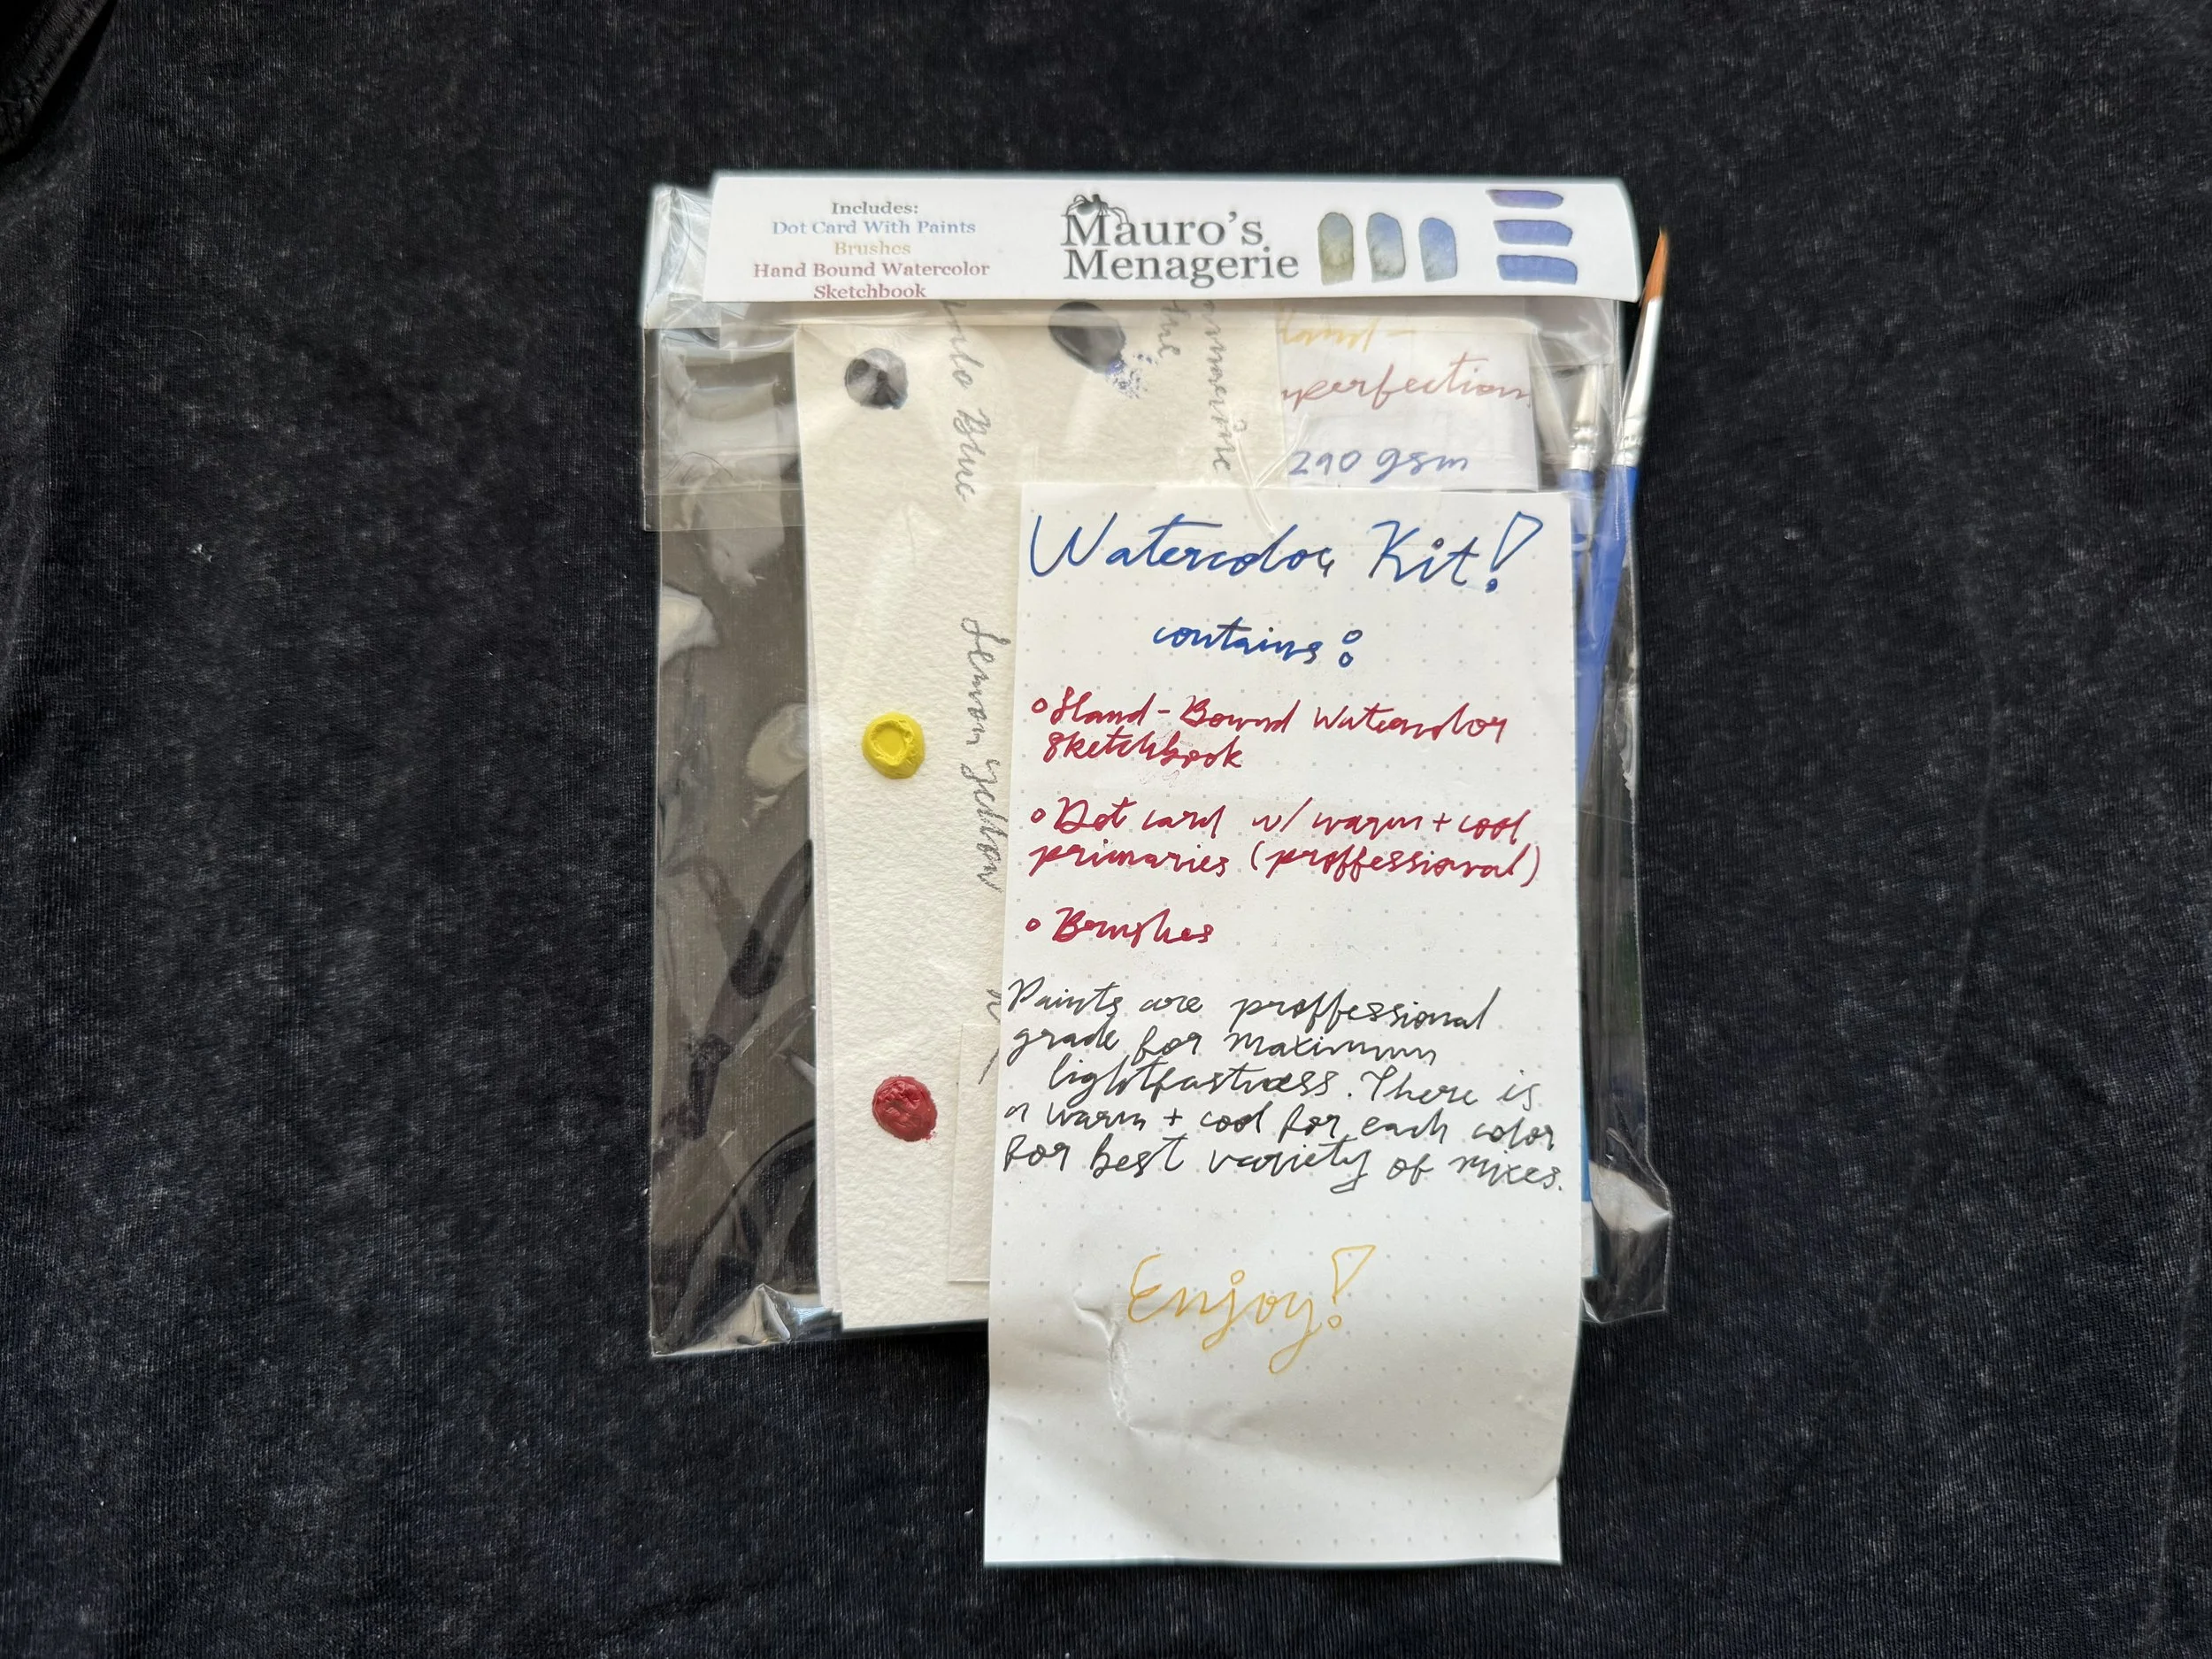 Includes:
Dot Card With Paints
Brushes
Hand Bound Watercolor
Sketchbook
Mauro's
Menagerie
Blue
Lemon Yellow
290 gsm
Watercolor Kit!
contains:
Hand-Bound Watercolor
Sketchbook
Dot card w/ warm + cool
primaries (proffessional)
Brushes
Paints are proffessional
grade for maximum
lightfastness. There is
a warm + cool for each color
for best variety of mixes.
Enjoy!